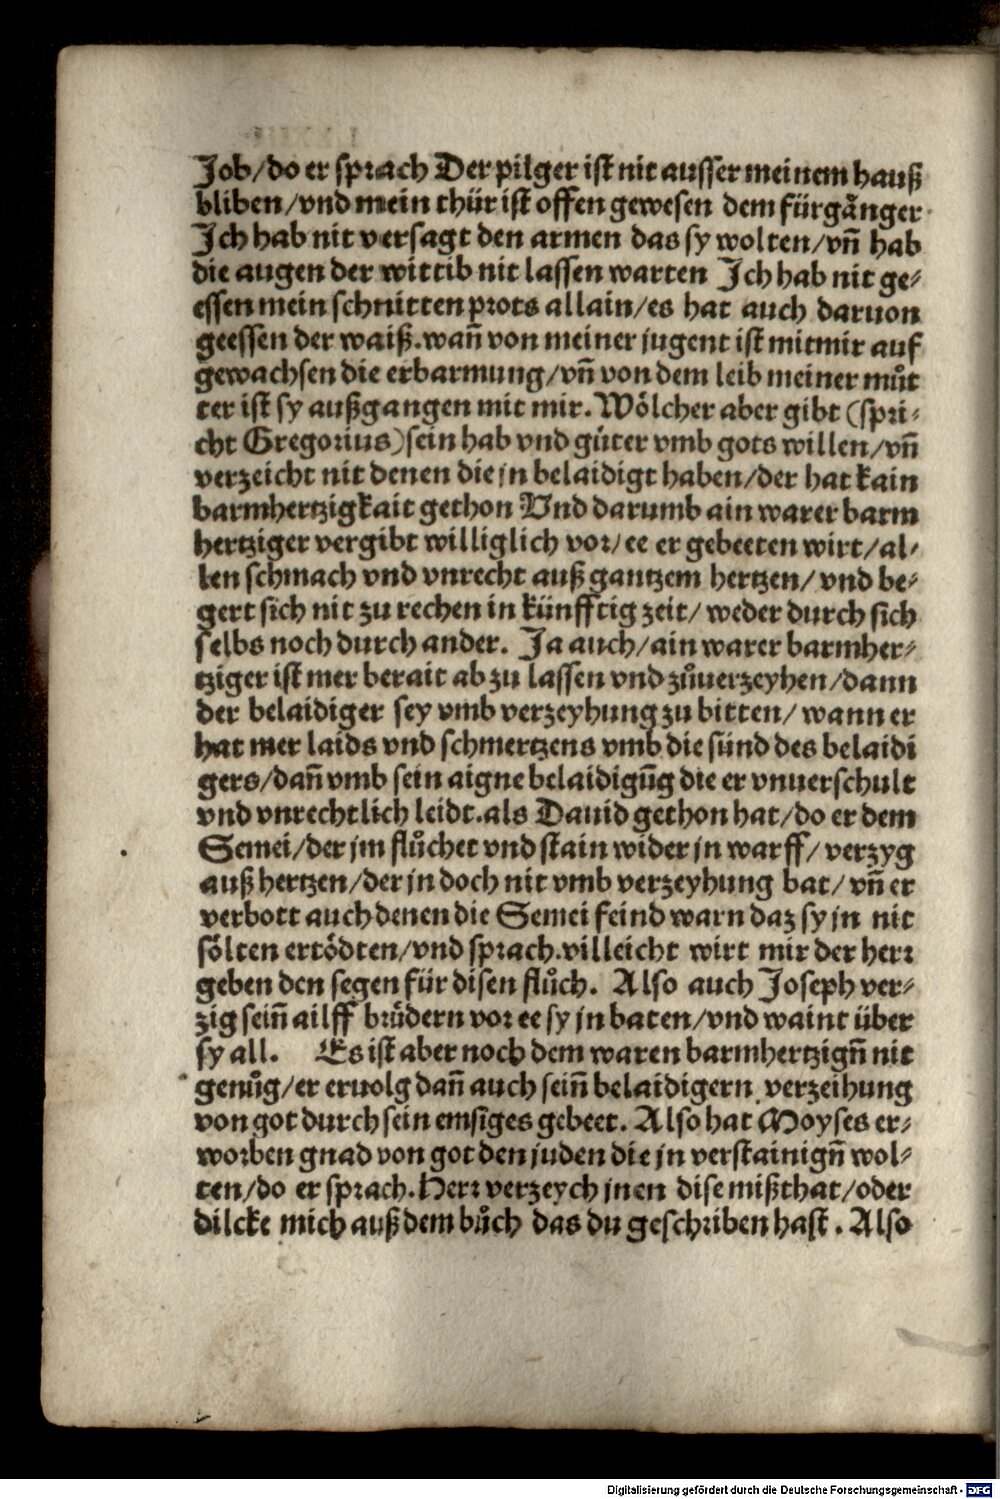 Job/do er sprach Der pilger ist nit ausser meinem hauß
bliben/vnd mein thür ist offen gewesen dem fürgånger
Ich hab nit versagt den armen das sy wolten/vñ hab
die augen der wittib nit lassen warten Ich hab nit ge⸗
essen mein schnitten prots allain/es hat auch daruon
geessen der waiß.wañ von meiner jugent ist mitmir auf
gewachsen die erbarmung/vñ von dem leib meiner můt
ter ist sy außgangen mit mir. Wölcher aber gibt (spri⸗
cht Gregorius)sein hab vnd güter vmb gots willen/vñ
verzeicht nit denen die jn belaidigt haben/der hat kain
barmhertzigkait gethon Vnd darumb ain warer barm
hertziger vergibt williglich vor/ee er gebeeten wirt/al⸗
len schmach vnd vnrecht auß gantzem hertzen/vnd be⸗
gert sich nit zu rechen in künfftig zeit/weder durch sich
selbs noch durch ander. Ja auch/ain warer barmher⸗
tziger ist mer berait ab zu lassen vnd zůuerzeyhen/dann
der belaidiger sey vmb verzeyhung zu bitten/wann er
hat mer laids vnd schmertzens vmb die sünd des belaidi
gers/dañ vmb sein aigne belaidigũg die er vnuerschult
vnd vnrechtlich leidt.als Dauid gethon hat/do er dem
Semei/der jm flůchet vnd stain wider jn warff/verzyg
auß hertzen/der jn doch nit vmb verzeyhung bat/vñ er
verbott auch denen die Semei feind warn daz sy jn nit
sölten ertödten/vnd sprach.villeicht wirt mir der herr
geben den segen für disen flůch. Also auch Joseph ver⸗
zig seiñ ailff brüdern vor ee sy jn baten/vnd waint über
sy all. Es ist aber noch dem waren barmhertzigñ nit
genůg/er eruolg dañ auch seiñ belaidigern verzeihung
von got durch sein emsiges gebeet. Also hat Moyses er⸗
worben gnad von got den juden die jn verstainigñ wol⸗
ten/do er sprach.Herr verzeych jnen dise mißthat/oder
dilcke mich auß dem bůch das du geschriben hast. Also
Digitalisierung gefördert durch die Deutsche Forschungsgemeinschaft - DFG